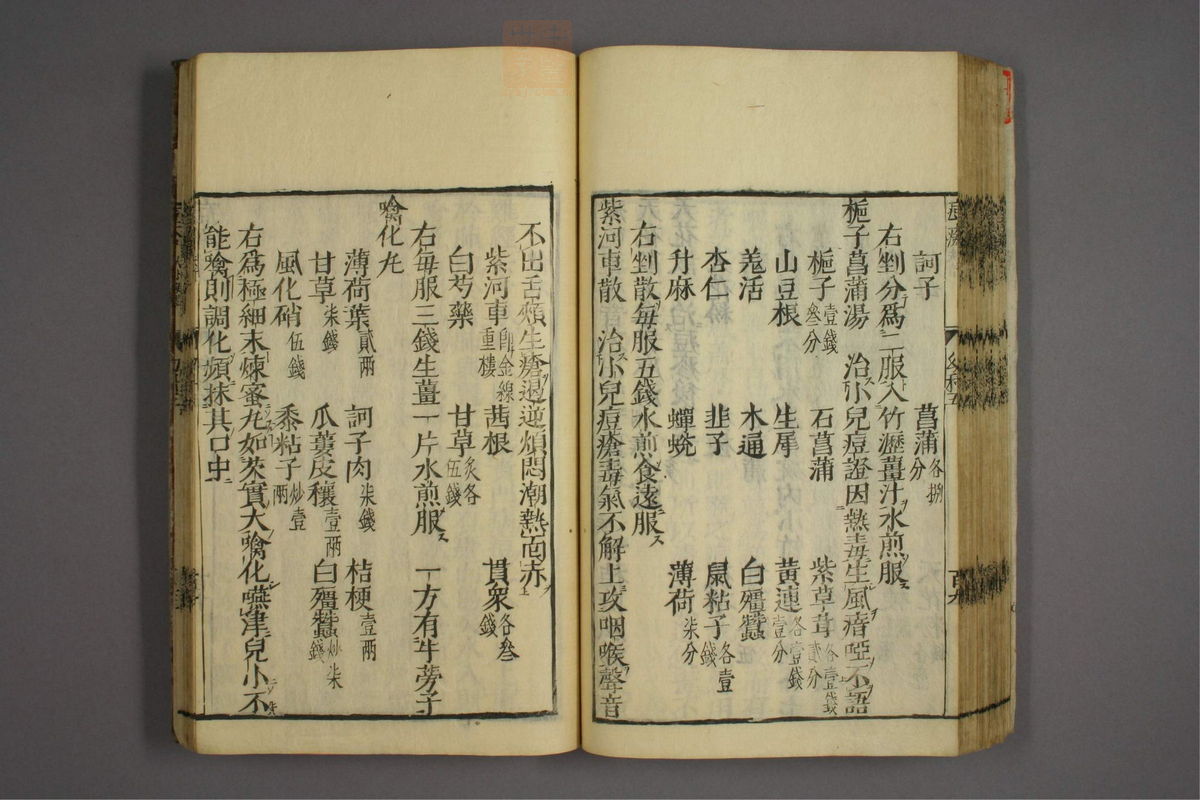 訶子　菖蒲各捌分
右剉分爲二服入竹瀝薑汁水煎服
梔子菖蒲湯　治小兒痘證因熱毒生風瘖啞不語
梔子壹錢叁分　石菖蒲　紫草茸各壹錢貳分
山豆根　生犀　黃連各壹錢壹分
羗活　木通　白殭蠶
杏仁　韭子　鼠粘子各壹錢
升麻　蟬蛻　薄荷柒分
右剉散每服五錢水煎食遠服
紫河車散　治小兒痘瘡毒氣不解上攻咽喉聲音
不出舌頰生瘡退逆煩悶潮熱面赤
紫河車即金線重樓　茜根　貫衆各叁錢
白芍藥　甘草炙各伍錢
右每服三錢生薑一片水煎服　一方有牛蒡子
噙化丸
薄荷葉貳兩　訶子肉柒錢　桔梗壹兩
甘草柒錢　瓜蔞皮穰壹兩　白殭蠶炒柒錢
風化硝伍錢　黍粘子炒壹兩
右爲極細末煉蜜丸如芡實大噙化嚥津兒小不
能噙則調化頻抹其口中